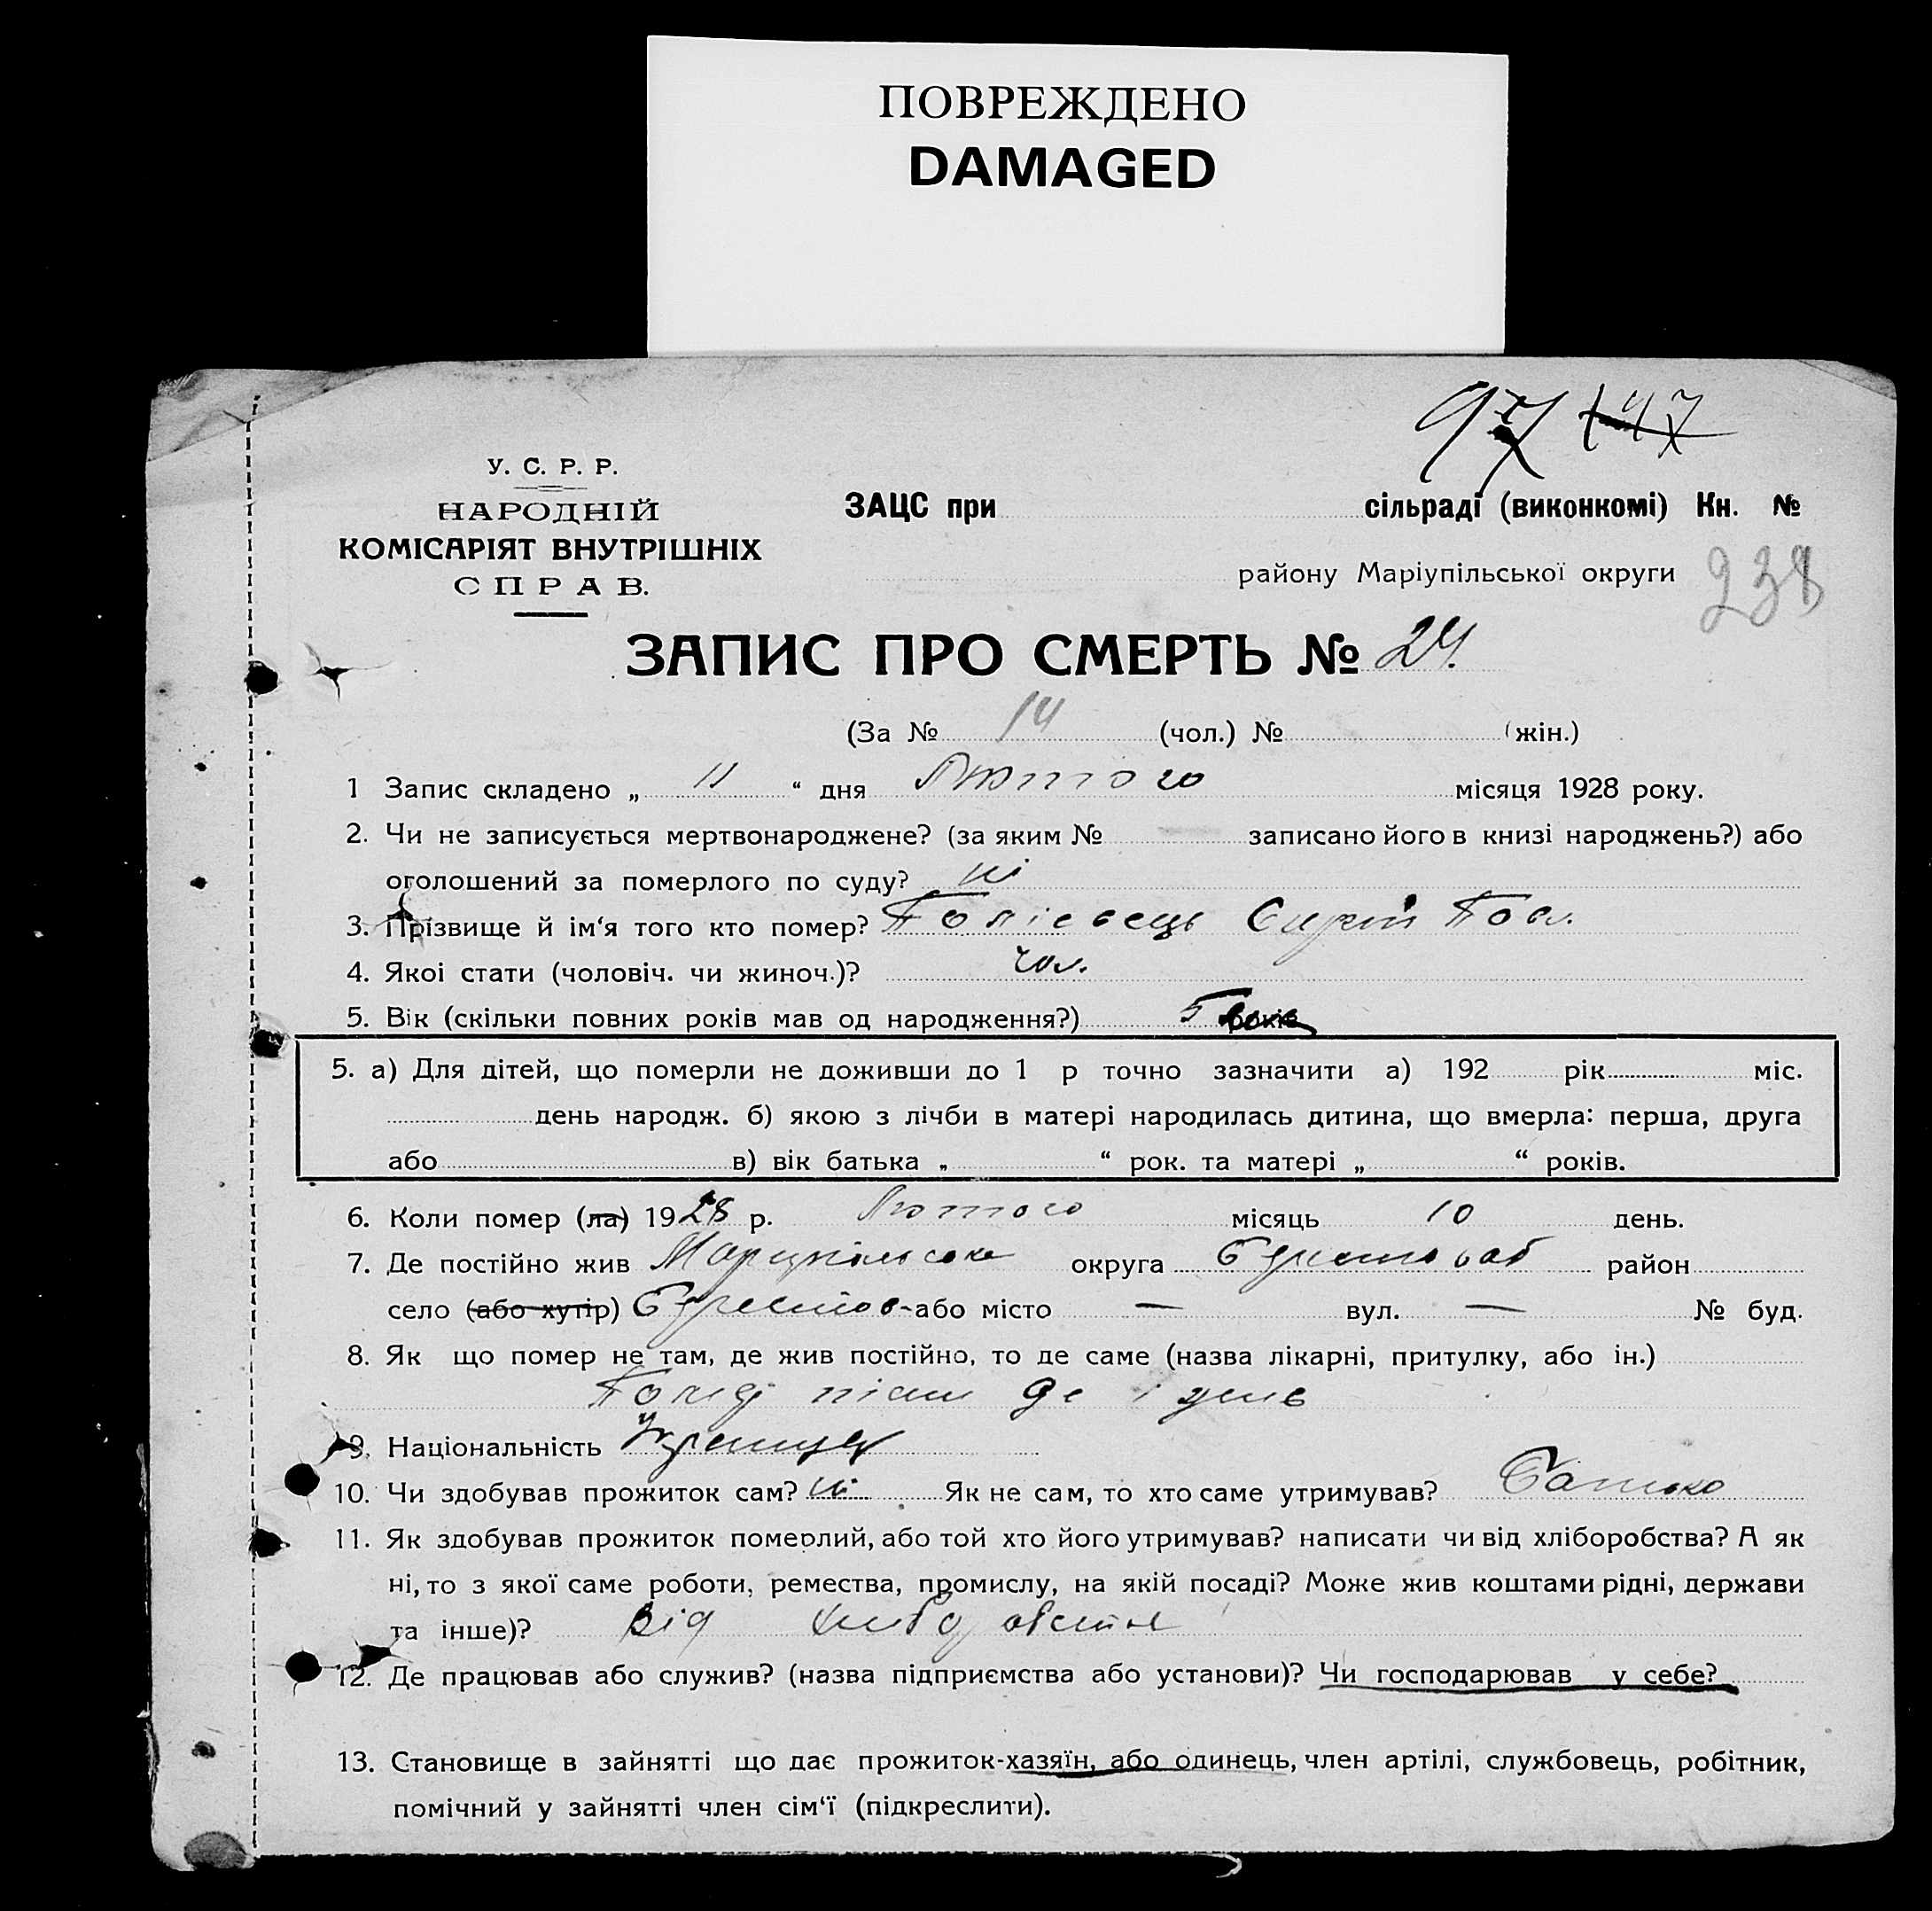 ПОВРЕЖДЕНО
DAMAGED
97 147
У. С. Р. Р.
НАРОДНІЙ
КОМІСАРІЯТ ВНУТРІШНІХ
СПРАВ.
ЗАЦС при сільраді (виконкомі) Кн. №
району Маріупільської округи 238
ЗАПИС ПРО СМЕРТЬ № 24.
(За № 14 (чол.) № (жін.)
1 Запис складено „ 11 “ дня Лютого місяця 1928 року.
2. Чи не записується мертвонароджене? (за яким № записано його в книзі народжень?) або
оголошений за померлого по суду? ні
3. Прізвище й ім‘я того кто помер? Пав.
4. Якоі стати (чоловіч. чи жиноч.)? Чол.
5. Вік (скільки повних років мав од народження?) 5
5. а) Для дітей, що померли не доживши до 1 р точно зазначити а) 192 рік міс.
день народж. б) якою з лічби в матері народилась дитина, що вмерла: перша, друга
або в) вік батька „ “ рок. та матері „ “ років.
6. Коли помер (ла) 1928 р. Лютого місяць 10 день.
7. Де постійно жив Маріупільська округа район
село (або хутір) або місто — вул. — № буд.
8. Як що помер не там, де жив постійно, то де саме (назва лікарні, притулку, або ін.)
де і
9. Національність Українец
10. Чи здобував прожиток сам? ні Як не сам, то хто саме утримував? Батько
11. Як здобував прожиток померлий, або той хто його утримував? написати чи від хліборобства? А як
ні, то з якої саме роботи, ремества, промислу, на якій посаді? Може жив коштами рідні, держави
та інше)? Від
12. Де працював або служив? (назва підприємства або установи)? Чи господарював у себе?
13. Становище в зайнятті що дає прожиток-хазяїн, або одинець, член артілі, службовець, робітник,
помічний у зайнятті член сім‘ї (підкреслити).